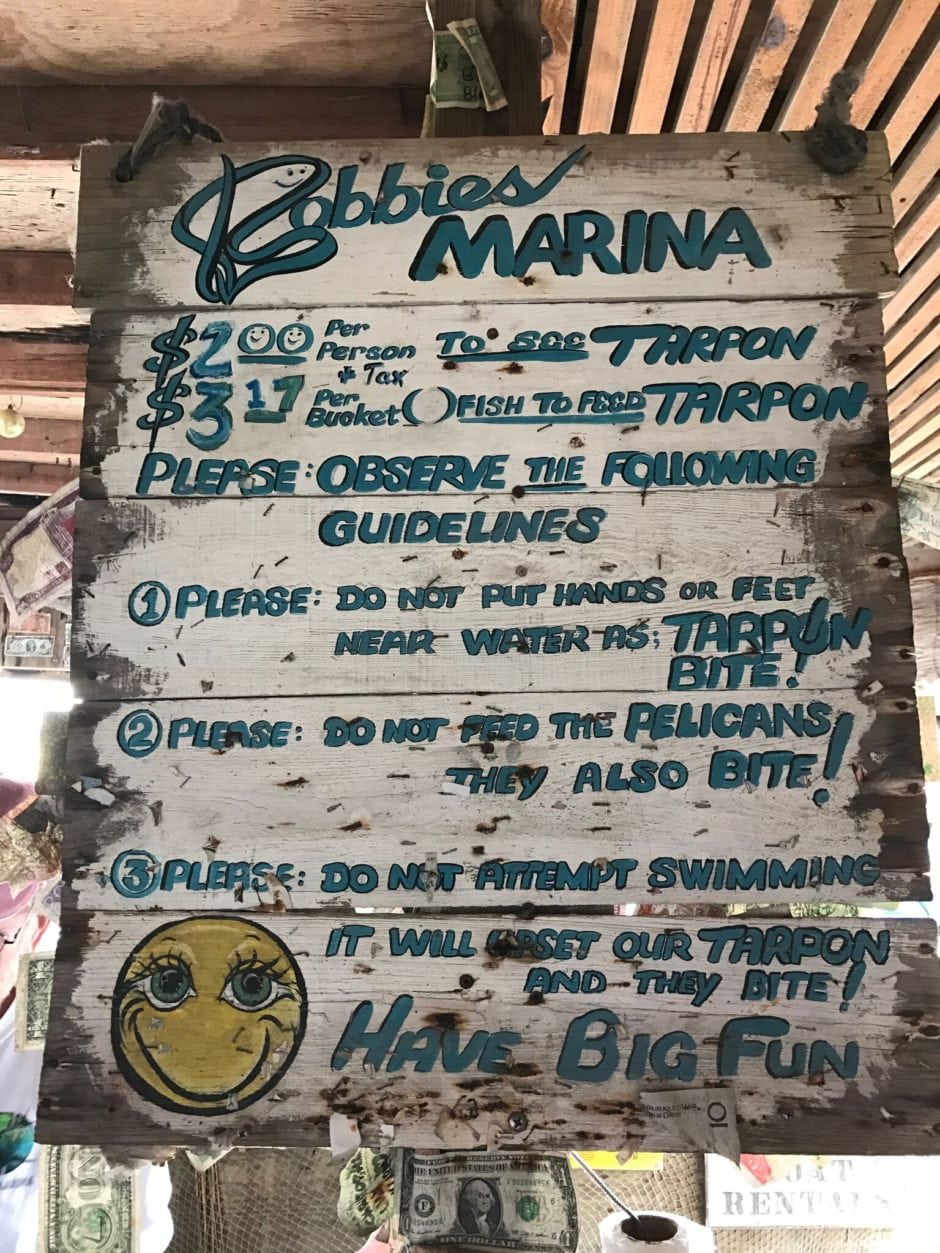 Robbies
MARINA
$2.00 Per Person + Tax TO SEE TARPON
$3.17 Per Bucket FISH TO FEED TARPON
PLEASE: OBSERVE THE FOLLOWING
GUIDELINES
1 PLEASE: DO NOT PUT HANDS OR FEET
NEAR WATER AS; TARPON
BITE!
2 PLEASE: DO NOT FEED THE PELICANS
THEY ALSO BITE!
3 PLEASE: DO NOT ATTEMPT SWIMMING
IT WILL UPSET OUR TARPON
AND THEY BITE!
HAVE BIG FUN
10
THE UNITED STATES OF AMERICA
ONE DOLLAR
RENTALS